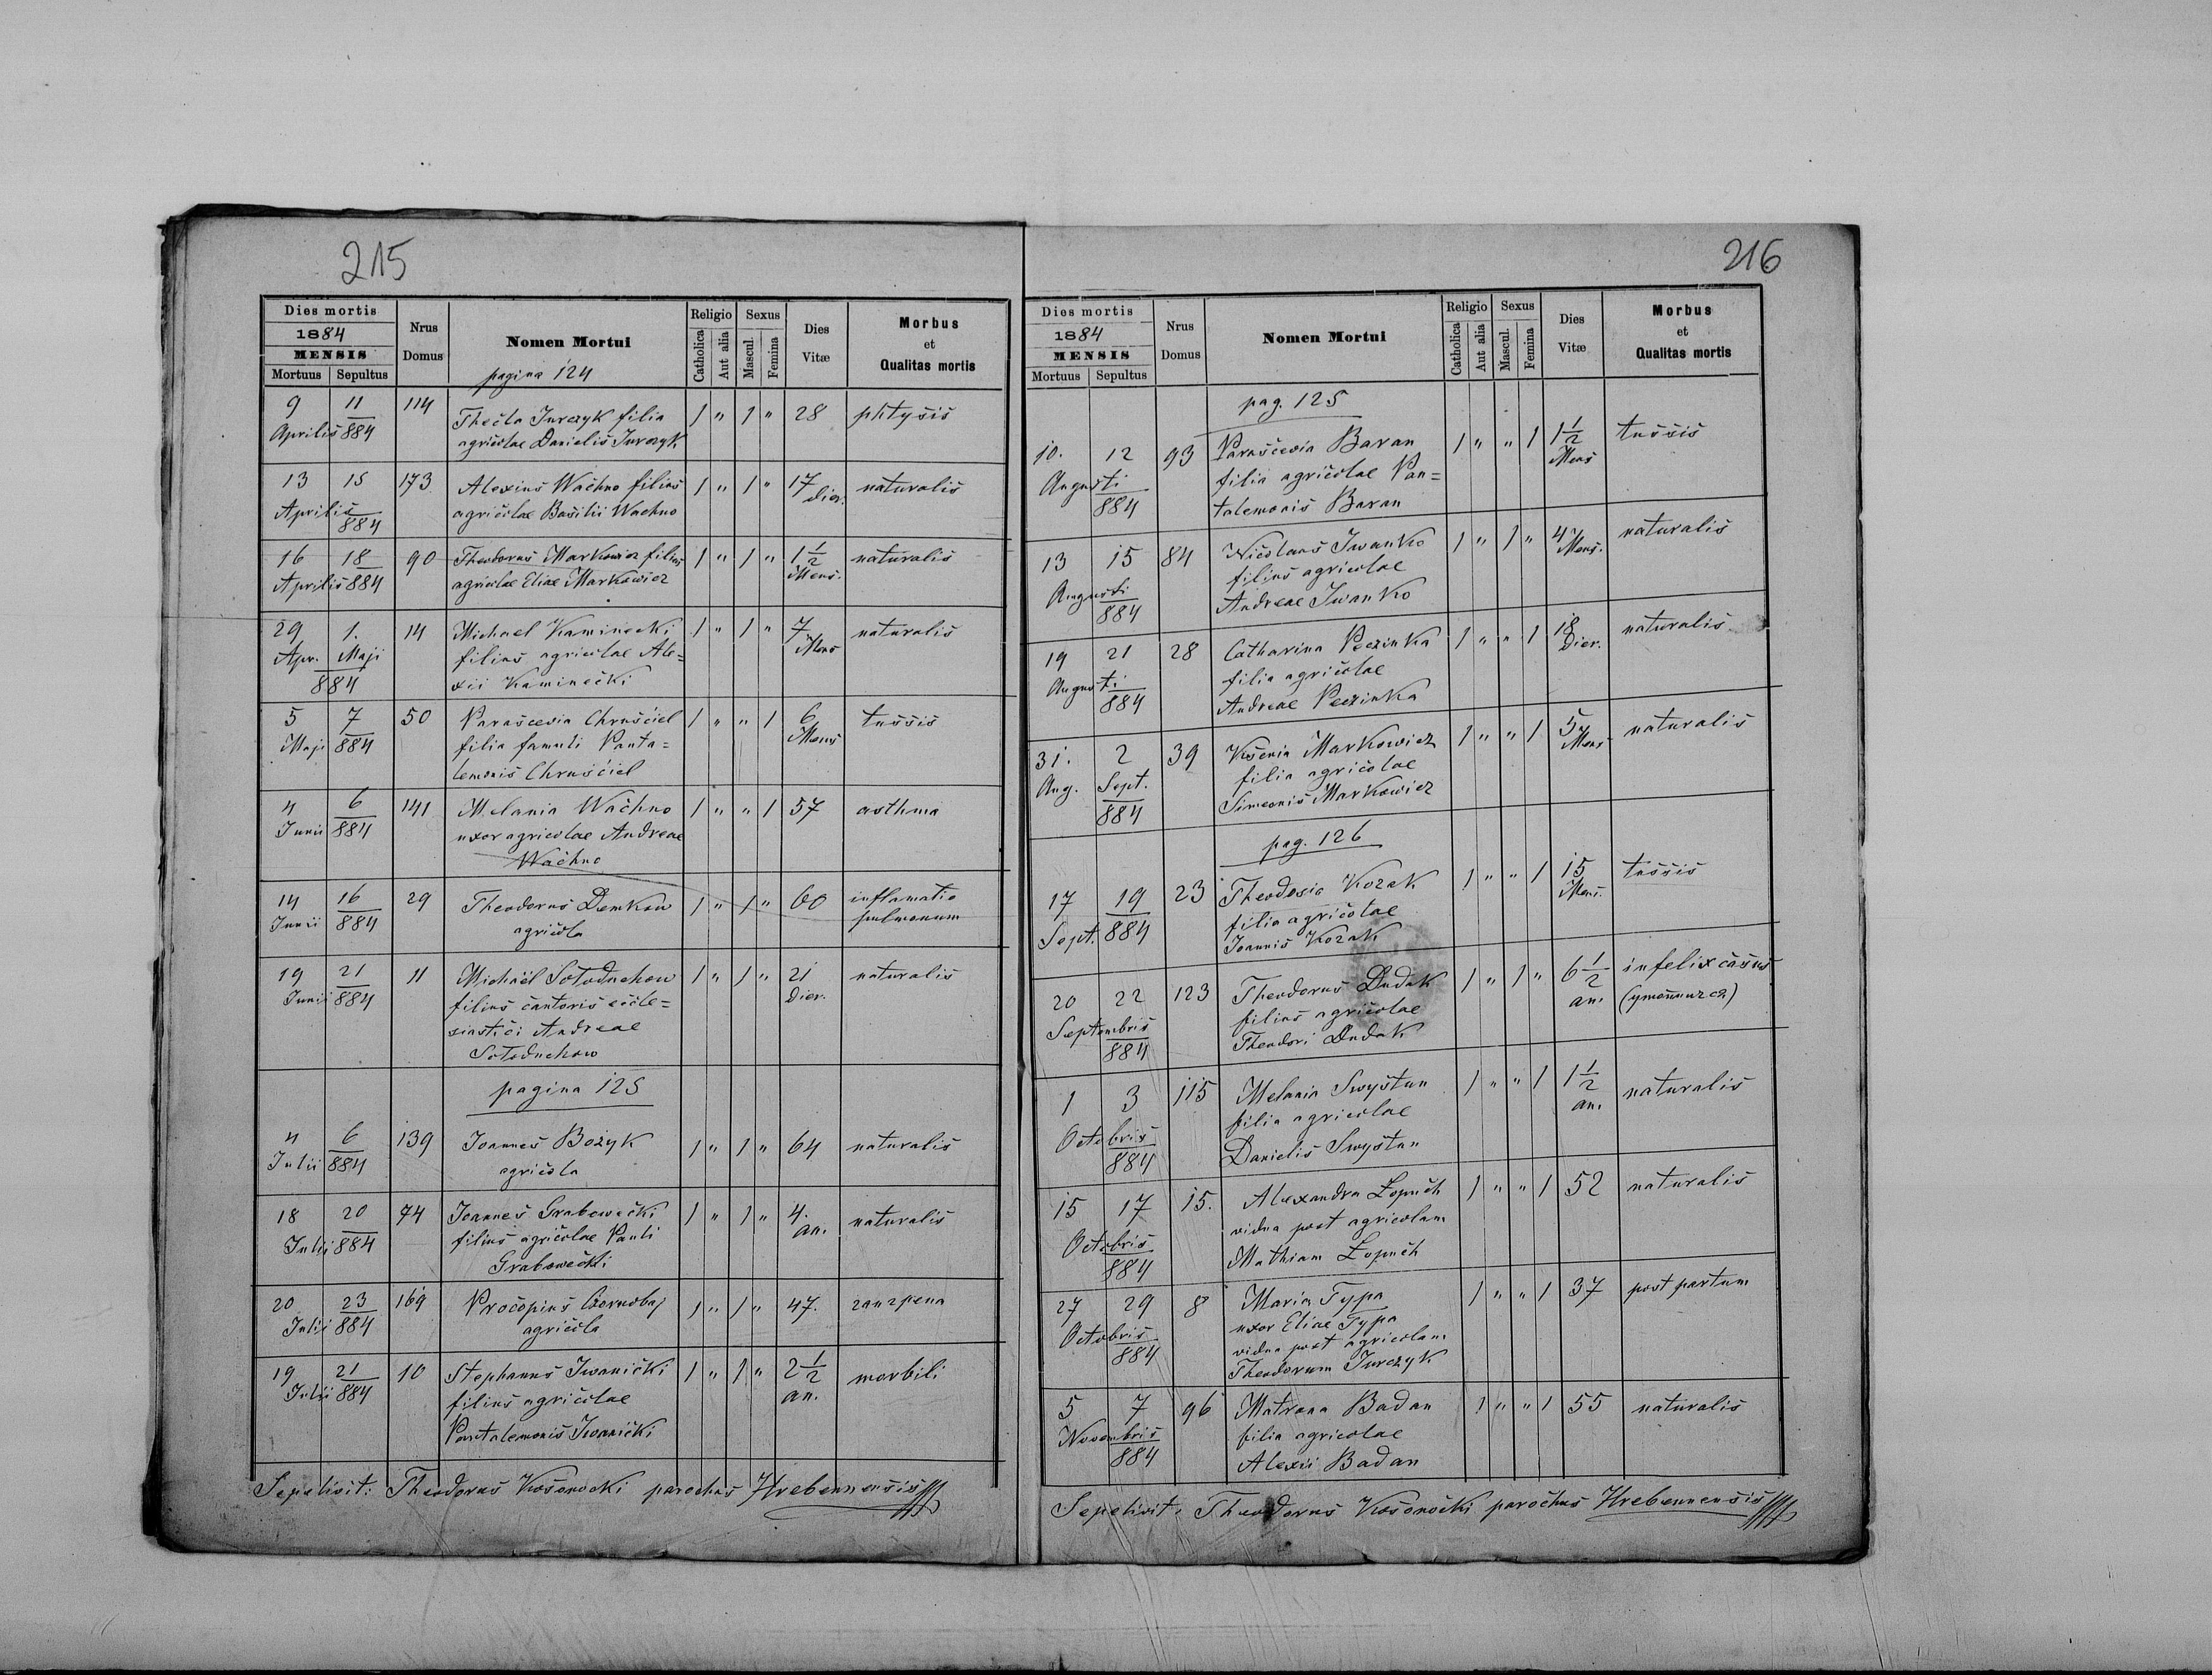 215
Dies mortis
1884
MENSIS
Mortuus Sepultus
Nrus
Domus
Nomen Mortui
pagina 124
Religio
Catholica
Aut alia
Sexus
Mascul.
Femina
Dies
Vitæ
Morbus
et
Qualitas mortis
9 11 114 Thecla Jurczyk filia 1 " 1 " 28 phtysis
Aprilis 884 agricolae Danielis Jurczyk
13 15 173 Alexius Wachno filius 1 " 1 " 17 naturalis
Aprilis 884 agricolae Basilii Wachno Dier.
16 18 90 Theodorus Markowicz filius 1 " 1 " 1 1/2 naturalis
Aprilis 884 agricolae Eliae Markowicz Mens.
29 1. 14 Michael Kaminecki 1 " 1 " 7 naturalis
Apr. Maji filius agricolae Ale= Mens
884 xii Kaminecki
5 7 50 Parascevia Chruściel 1 " " 1 6 tussis
Maji 884 filia famuli Panta= Mens
lemonis Chruściel
4 6 141 Melania Wachno 1 " " 1 57 asthma
Junii 884 uxor agricolae Andreae
Wachno
14 16 29 Theodorus Demkow 1 " 1 " 60 inflamatio
Junii 884 agricola pulmonum
19 21 11 Michaël Sołoduchow 1 " 1 " 21 naturalis
Junii 884 filius cantoris eccle= Dier.
siastici Andreae
Sołoduchow
pagina 125
4 6 139 Joannes Bożyk 1 " 1 " 64 naturalis
Julii 884 agricola
18 20 74 Joannes Grabowecki 1 " 1 " 4. naturalis
Julii 884 filius agricolae Pauli an.
Grabowecki
20 23 169 Procopius Czornobaj 1 " 1 " 47. zangrena
Julii 884 agricola
19 21 10 Stephanus Iwanicki 1 " 1 " 2 1/2 morbili
Julii 884 filius agricolae an.
Pantalemonis Iwanicki
Sepelivit: Theodorus Kosonocki parochus Hrebennensis
216
Dies mortis
1884
MENSIS
Mortuus Sepultus
Nrus
Domus
Nomen Mortui
Religio
Catholica
Aut alia
Sexus
Mascul.
Femina
Dies
Vitæ
Morbus
et
Qualitas mortis
pag. 125
10. 12 93 Parascevia Baran 1 " " 1 1 1/2 tussis
Augusti filia agricolae Pan= Mens
884 talemonis Baran
13 15 84 Nicolaus Iwanko 1 " 1 " 4 naturalis
Augusti filius agricolae Mens.
884 Andreae Iwanko
19 21 28 Catharina Peczinka 1 " " 1 18 naturalis
Augusti filia agricolae Dier.
884 Andreae Peczinka
31. 2 39 Ksenia Markowicz 1 " " 1 5 naturalis
Aug. Sept. filia agricolae Mens
884 Simeonis Markowicz
pag. 126
17 19 23 Theodosia Kozak 1 " " 1 15 tussis
Sept. 884 filia agricolae Mens.
Joannis Kozak
20 22 123 Theodorus Dudak 1 " 1 " 6 1/2 infelix casus
Septembris filius agricolae an.
884 Theodori Dudak
1 3 115 Melania Swystun 1 " " 1 1 1/2 naturalis
Octobris filia agricolae an.
884 Danielis Swystun
15 17 15. Alexandra Łopuch 1 " " 1 52 naturalis
Octobris vidua post agricolam
884 Mathiam Łopuch
27 29 8 Maria Gypa 1 " " 1 37 post partum
Octobris uxor Eliae Gypa
884 vidua post agricolam
Theodorum Jurczyk
5 7 96 Matrona Badan 1 " " 1 55 naturalis
Novembris filia agricolae
884 Alexii Badan
Sepelivit: Theodorus Kosonocki parochus Hrebennensis